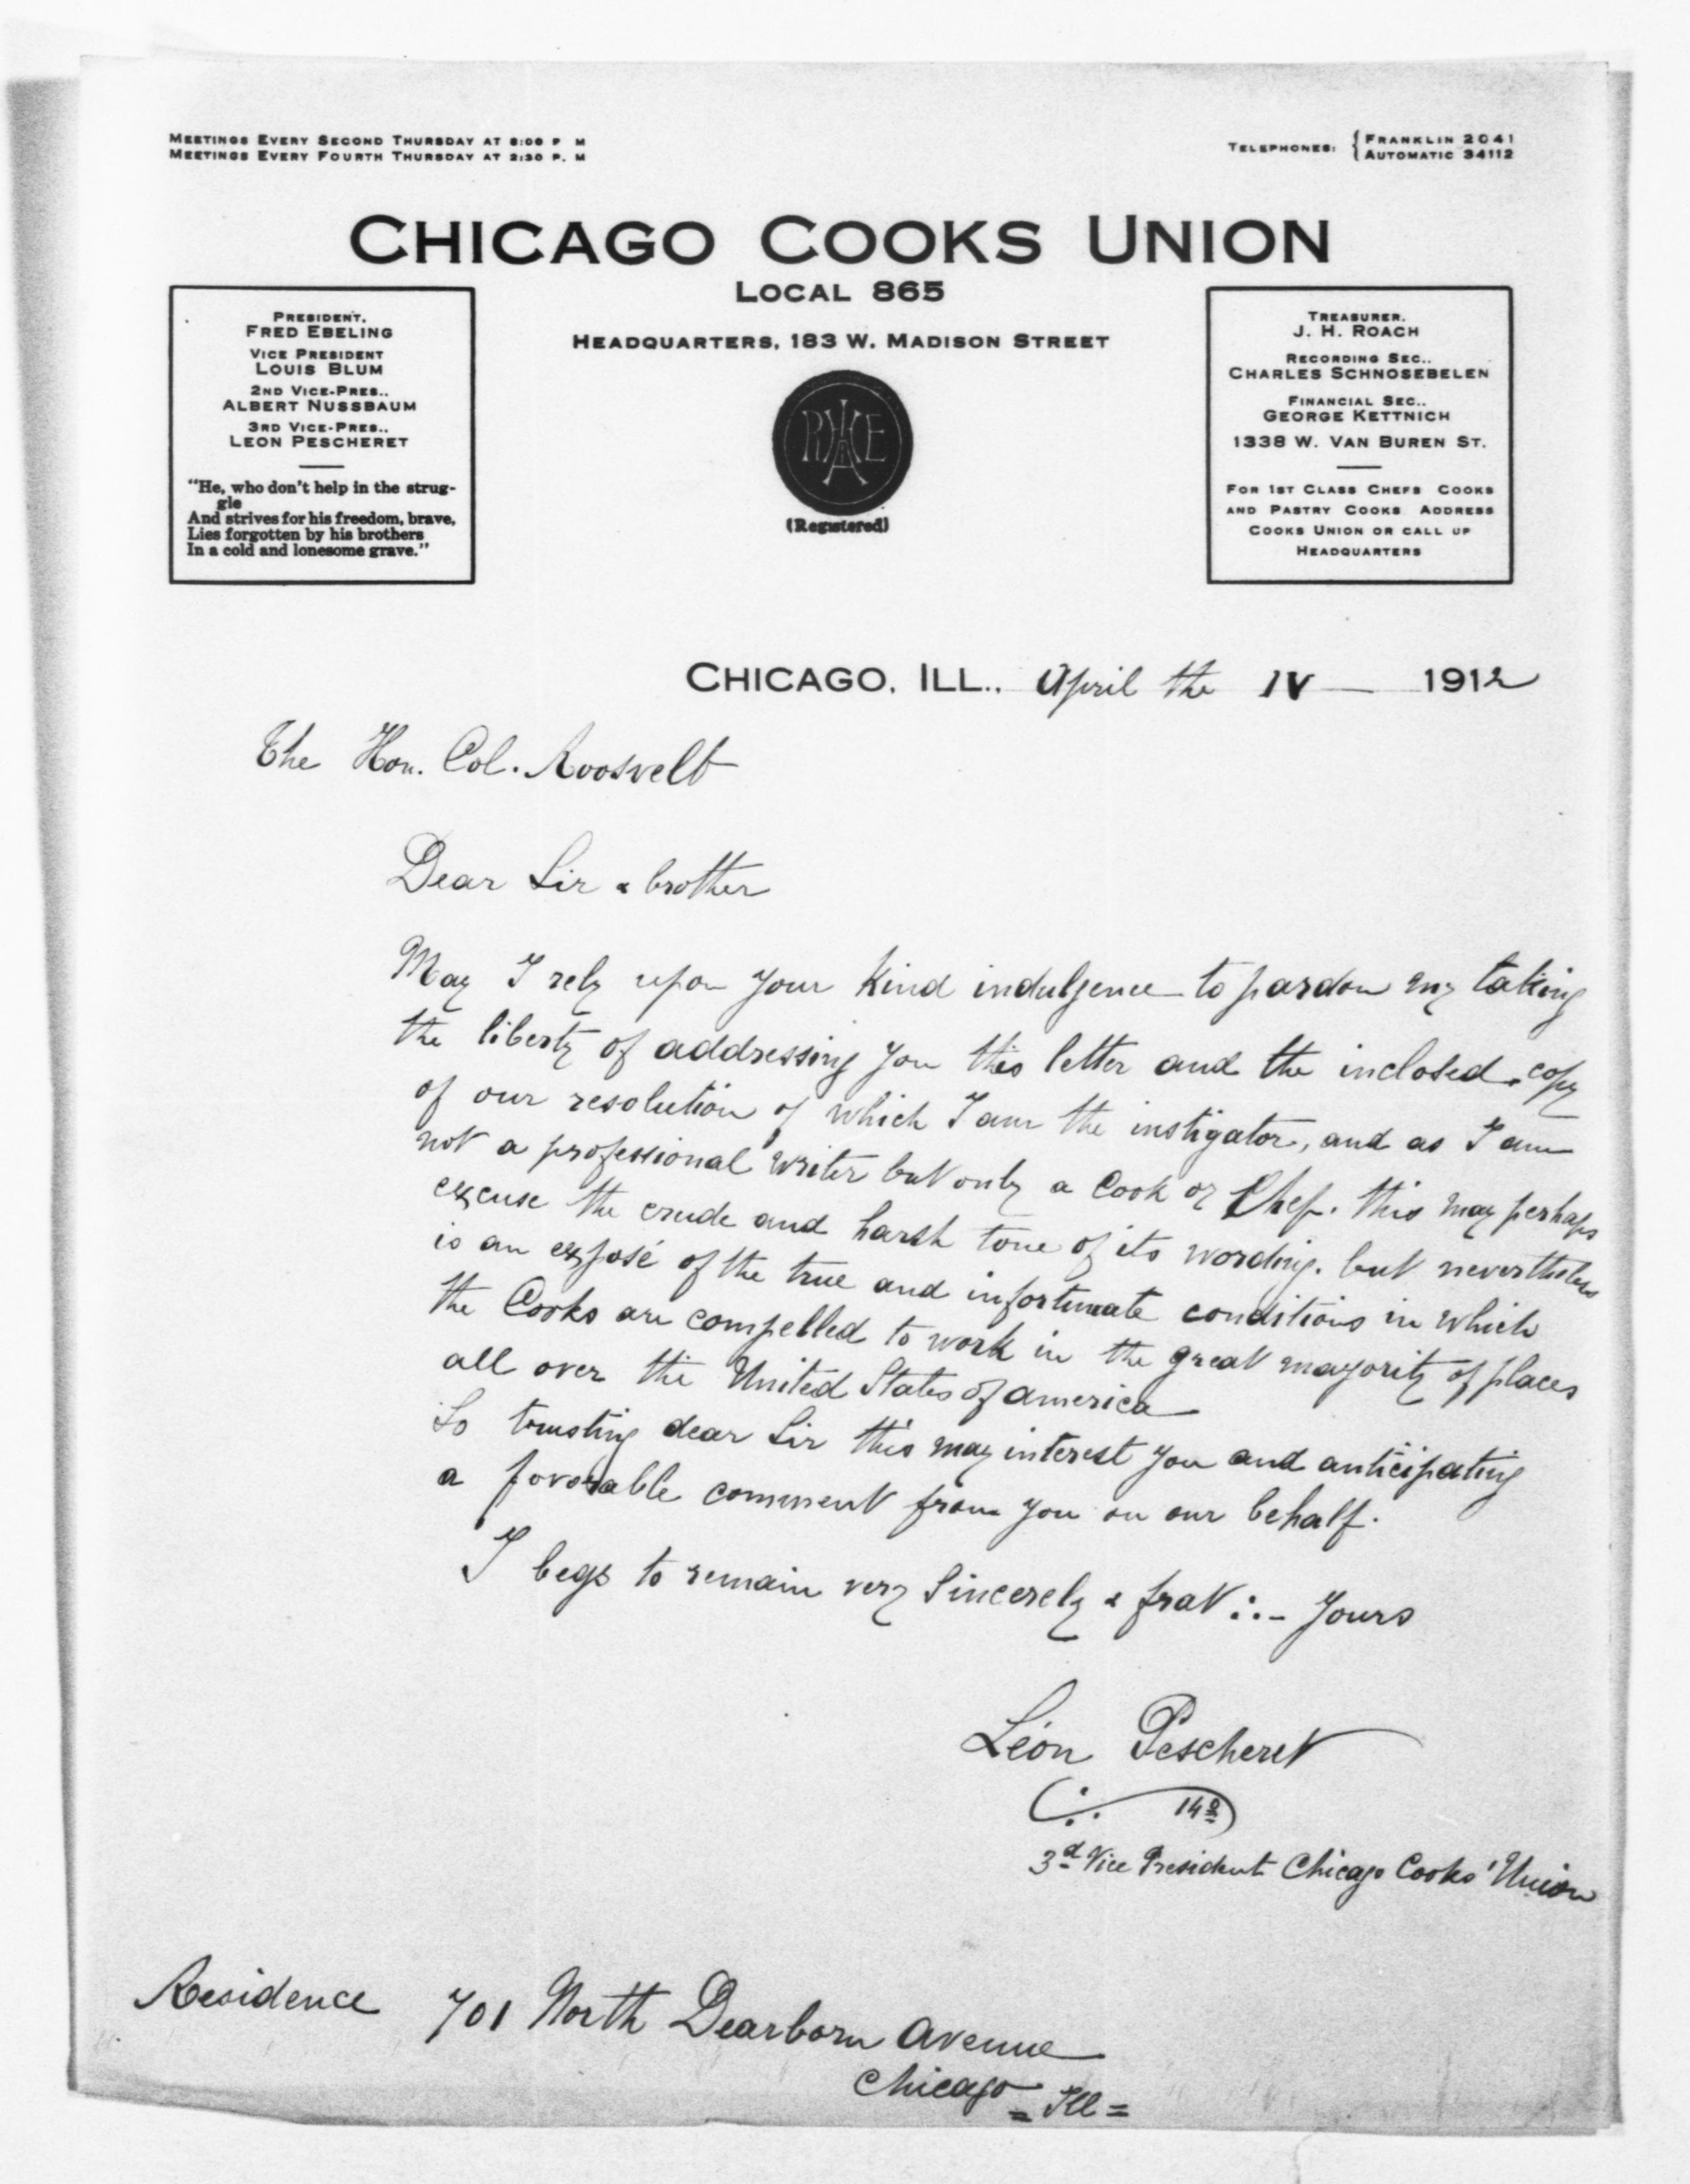 MEETINGS EVERY SECOND THURSDAY AT 8:00 P M
MEETINGS EVERY FOURTH THURSDAY AT 2:30 P. M
TELEPHONES: { FRANKLIN 2041
AUTOMATIC 34112
CHICAGO COOKS UNION
LOCAL 865
HEADQUARTERS, 183 W. MADISON STREET
(Registered)
PRESIDENT,
FRED EBELING
VICE PRESIDENT
LOUIS BLUM
2ND VICE-PRES.,
ALBERT NUSSBAUM
3RD VICE-PRES.,
LEON PESCHERET
"He, who don't help in the strug-
gle
And strives for his freedom, brave,
Lies forgotten by his brothers
In a cold and lonesome grave."
TREASURER,
J. H. ROACH
RECORDING SEC.,
CHARLES SCHNOSEBELEN
FINANCIAL SEC.,
GEORGE KETTNICH
1338 W. VAN BUREN ST.
FOR 1ST CLASS CHEFS COOKS
AND PASTRY COOKS ADDRESS
COOKS UNION OR CALL UP
HEADQUARTERS
CHICAGO, ILL., April the IV — 1912
The Hon. Col. Roosvelt
Dear Sir & brother
May I rely upon your kind indulgence to pardon my taking
the liberty of addressing you this letter and the inclosed copy
of our resolution of which I am the instigator, and as I am
not a professional writer but only a Cook or Chef. this may perhaps
excuse the crude and harsh tone of its wording. but nevertheless
is an exposé of the true and infortunate conditions in which
the Cooks are compelled to work in the great mayority of places
all over the United States of america
So trusting dear Sir this may interest you and anticipating
a favorable comment from you on our behalf.
I begs to remain very Sincerely & frat ∴ - yours
Léon Pescheret
14º
3d Vice President Chicago Cooks' Union
Residence 701 North Dearborn Avenue
Chicago
= Ill =